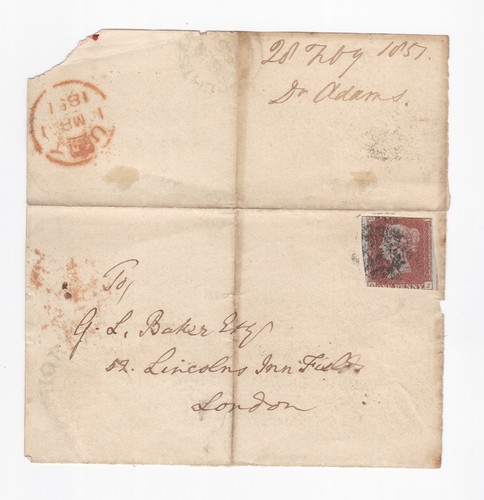 28 Feby 1851.
Dr Adams.
1 MR 1
1851
To,
G. L. Baker Esqr
52. Lincolns Inn Fields
London
ONE PENNY